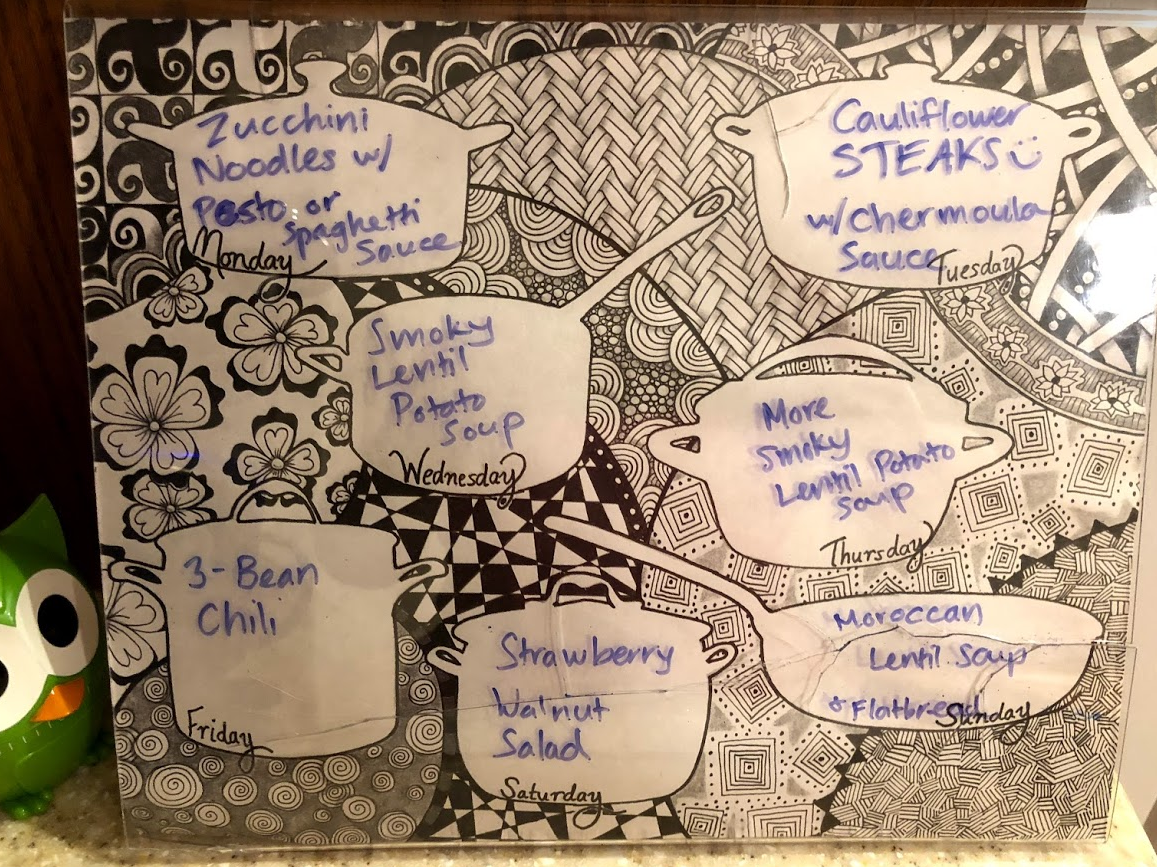 Zucchini
Noodles w/
Pesto or
spaghetti
Sauce
Monday
Cauliflower
STEAKS
w/Chermoula
Sauce
Tuesday
Smoky
Lentil
Potato
Soup
Wednesday
More
Smoky
Lentil Potato
Soup
Thursday
3-Bean
Chili
Friday
Strawberry
Walnut
Salad
Saturday
Moroccan
Lentil Soup
+ Flatbread
Sunday